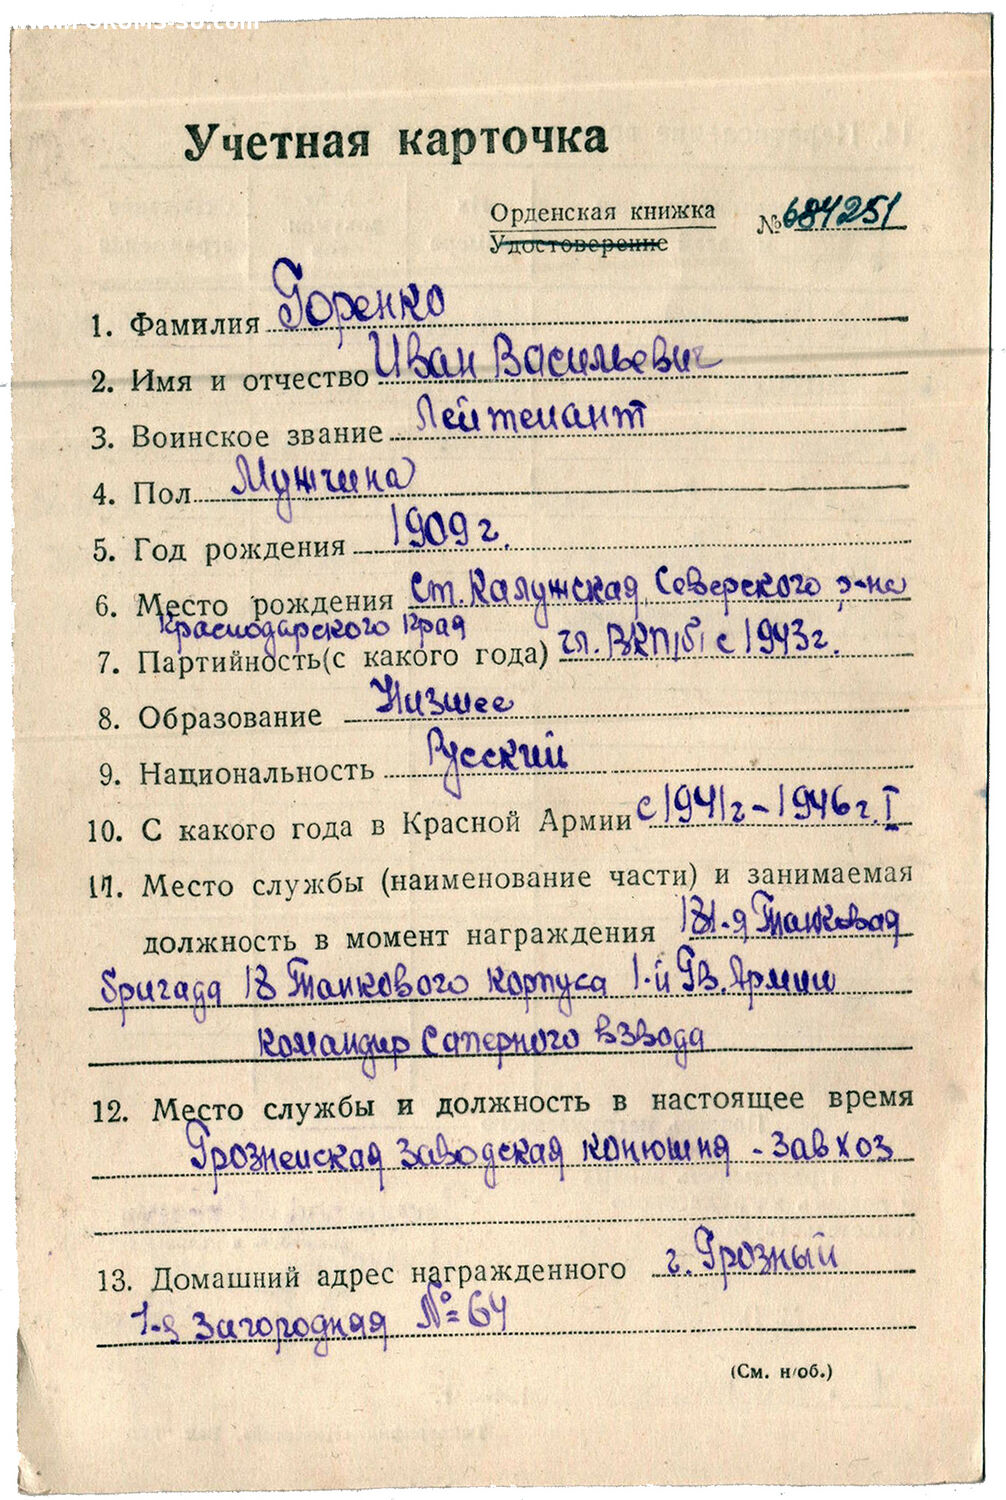 Учетная карточка
Орденская книжка
Удостоверение
№ 684251
1. Фамилия Горенко
2. Имя и отчество Иван Васильевич
3. Воинское звание Лейтенант
4. Пол Мужчина
5. Год рождения 1909 г.
6. Место рождения Ст. Калужская Северского р-на
Краснодарского Края
7. Партийность (с какого года) чл. ВКП(б) с 1943 г.
8. Образование Низшее
9. Национальность Русский
10. С какого года в Красной Армии с 1941 г – 1946 г. I
11. Место службы (наименование части) и занимаемая
должность в момент награждения 181-я Танковая
бригада 18 Танкового корпуса 1-й Гв. Армии
командир Саперного взвода
12. Место службы и должность в настоящее время
Грозненская Заводская конюшня - завхоз
13. Домашний адрес награжденного г. Грозный
1-я Загородная № 64
(См. н/об.)